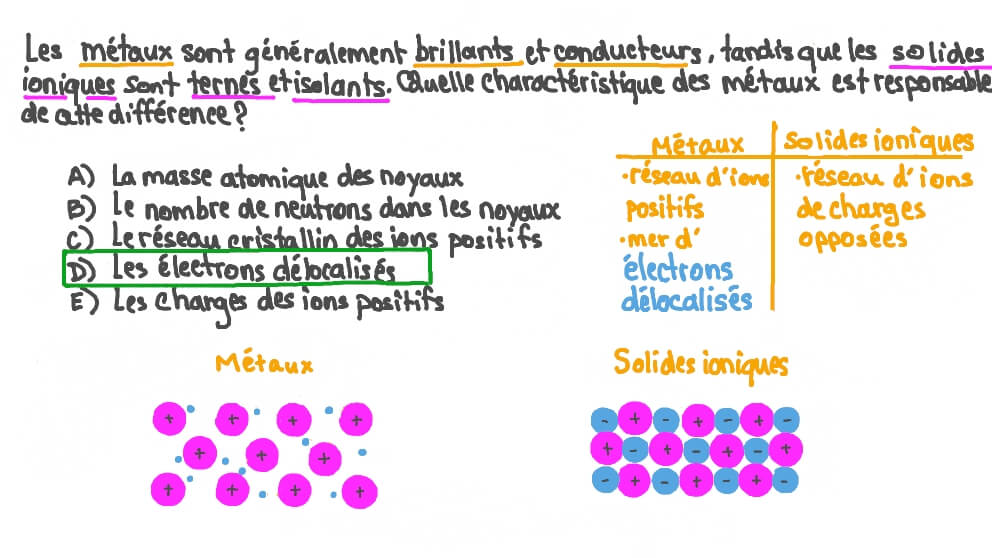 Les métaux sont généralement brillants et conducteurs, tandis que les solides
ioniques sont ternes et isolants. Quelle charactéristique des métaux est responsable
de cette différence?
A) La masse atomique des noyaux
B) Le nombre de neutrons dans les noyaux
C) Le réseau cristallin des ions positifs
D) Les électrons délocalisés
E) Les charges des ions positifs
Métaux
Solides ioniques
•réseau d'ions
positifs
•mer d'
électrons
délocalisés
•réseau d'ions
de charges
opposées
Métaux
+ + + +
+ + +
+ + + +
Solides ioniques
- + - + - + -
+ - + - + - +
- + - + - + -